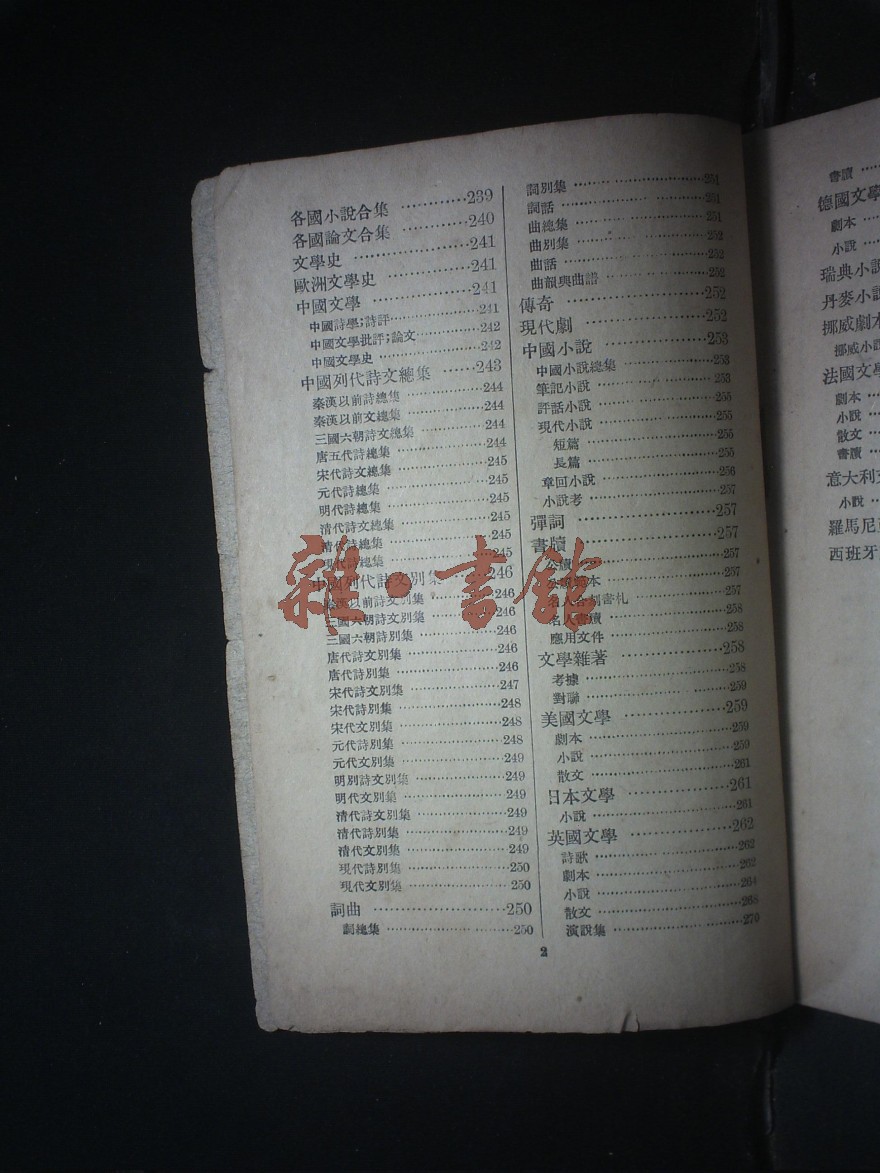 各國小說合集 …………239
各國論文合集 …………240
文學史 …………241
歐洲文學史 …………241
中國文學 …………241
中國詩學;詩評…………241
中國文學批評;論文…………242
中國文學史 …………242
中國列代詩文總集 …………243
秦漢以前詩總集 …………244
秦漢以前文總集 …………244
三國六朝詩文總集 …………244
唐五代詩總集 …………244
宋代詩文總集 …………245
元代詩總集 …………245
明代詩總集 …………245
清代詩文總集 …………245
清代詩總集 …………245
現代詩總集 …………245
中國列代詩文別集 …………246
秦漢以前詩文別集 …………246
三國六朝詩文別集 …………246
三國六朝詩別集 …………246
唐代詩文別集 …………246
唐代詩別集 …………246
宋代詩文別集 …………247
宋代詩別集 …………248
宋代文別集 …………248
元代詩別集 …………248
元代文別集 …………249
明別詩文別集 …………249
明代文別集 …………249
清代詩文別集 …………249
清代詩別集 …………249
清代文別集 …………249
現代詩別集 …………250
現代文別集 …………250
詞曲 …………250
詞總集 …………250
詞別集 …………251
詞話 …………251
曲總集 …………251
曲別集 …………252
曲話 …………252
曲韻與曲譜 …………252
傳奇 …………252
現代劇 …………252
中國小說 …………253
中國小說總集 …………253
筆記小說 …………253
評話小說 …………255
現代小說 …………255
短篇 …………255
長篇 …………255
章回小說 …………256
小說考 …………257
彈詞 …………257
書牘 …………257
公牘 …………257
…………257
名人 書札 …………257
名人書牘 …………258
應用文件 …………258
文學雜著 …………258
考據 …………258
對聯 …………259
美國文學 …………259
劇本 …………259
小說 …………259
散文 …………261
日本文學 …………261
小說 …………261
英國文學 …………262
詩歌 …………262
劇本 …………262
小說 …………264
散文 …………268
演說集 …………270
2
雜·書館
書牘 ……
德國文學
劇本 ……
小說 ……
瑞典小說
丹麥小說
挪威劇本
挪威小說
法國文學
劇本 ……
小說 ……
散文 ……
書牘 ……
意大利
小說 ……
羅馬尼
西班牙